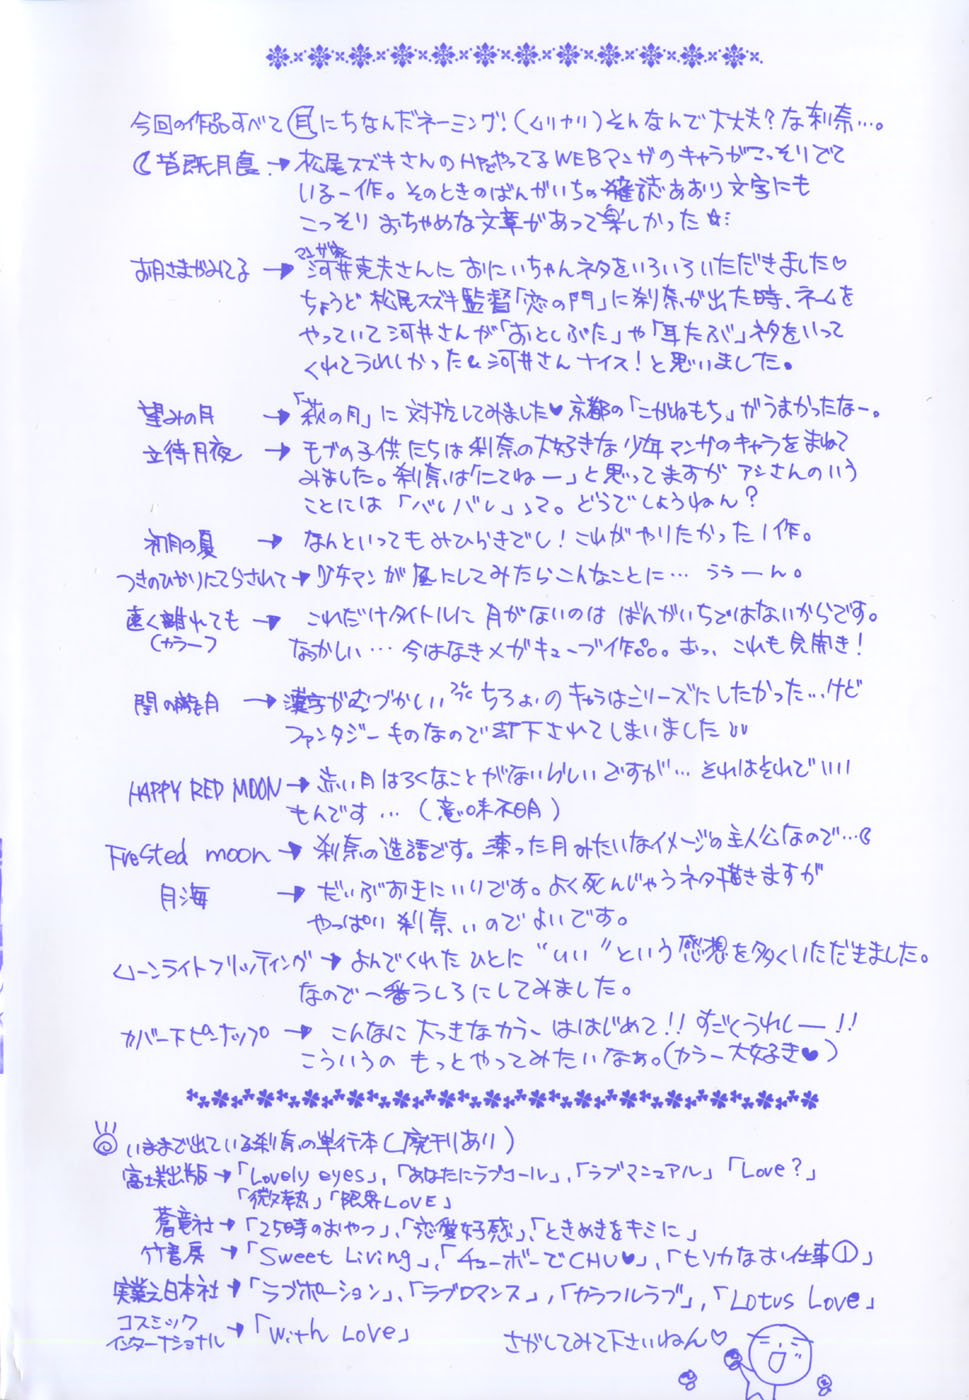 今回の作品すべて月にちなんだネーミング!(ムリヤリ)そんなんで大丈夫?な刹奈…。
皆既月食 → 松尾スズキさんのHPでやってるWEBマンガのキャラがこっそりでて
いる一作。そのときのばんがいちの雑誌あおり文字にも
こっそりおちゃめな文章があって楽しかった☆
お月さまがみてる → 河井克夫さんにおにいちゃんネタをいろいろいただきました♡
マンガ家
ちょうど松尾スズキ監督「恋の門」に刹奈が出た時、ネームを
やっていて河井さんが「おとしぶた」や「耳たぶ」ネタをいって
くれてうれしかった 河井さんナイス!と思いました。
望みの月 → 「萩の月」に対抗してみました♥京都の「こがねもち」がうまかったなー。
立待月夜 → モブの子供たちは刹奈の大好きな少年マンガのキャラをまねて
みました。刹奈は「にてねー」と思ってますがアシさんのいう
ことには「バレバレ」って。どうでしょうねん?
初月の夏 → なんといってもみひらきでし!これがやりたかった1作。
つきのひかりにてらされて → 少年マンガ風にしてみたらこんなことに… ううーん。
遠く離れても → これだけタイトルに月がないのはばんがいちではないからです。
(カラー) なつかしい…今はなきメガキューブ作品。おっ、これも見開き!
闇の朧月 → 漢字がむづかしい ちょい のキャラはシリーズにしたかった…けど
ファンタジーものなので却下されてしまいました
HAPPY RED MOON → 赤い月はろくなことがないらしいですが… それはそれでいい
もんです…(意味不明)
Frested moon → 刹奈の造語です。凍った月みたいなイメージの主人公なので…
月海 → だいぶおきにいりです。よく死んじゃうネタ描きますが
やっぱり刹奈、いのでよいです。
ムーンライトフリッティング → よんでくれたひとに“いい”という感想を多くいただきました。
なので一番うしろにしてみました。
カバー下ピンナップ → こんなに大っきなカラーははじめて!!すごくうれしー!!
こういうのもっとやってみたいなぁ。(カラー大好き♥)
いままで出ている刹奈の単行本(廃刊あり)
富士美出版→「Lovely eyes」、「あなたにラブコール」、「ラブマニュアル」「Love?」
「微熱」「限界LOVE」
蒼竜社→「25時のおやつ」、「恋愛好感」、「ときめきをキミに」
竹書房→「Sweet Living」、「チューボーでCHU♥」、「ヒソカなお仕事①」
実業之日本社→「ラブポーション」、「ラブロマンス」、「カラフルラブ」、「Lotus Love」
コスミック
インターナショナル→「With Love」 さがしてみて下さいねん♡